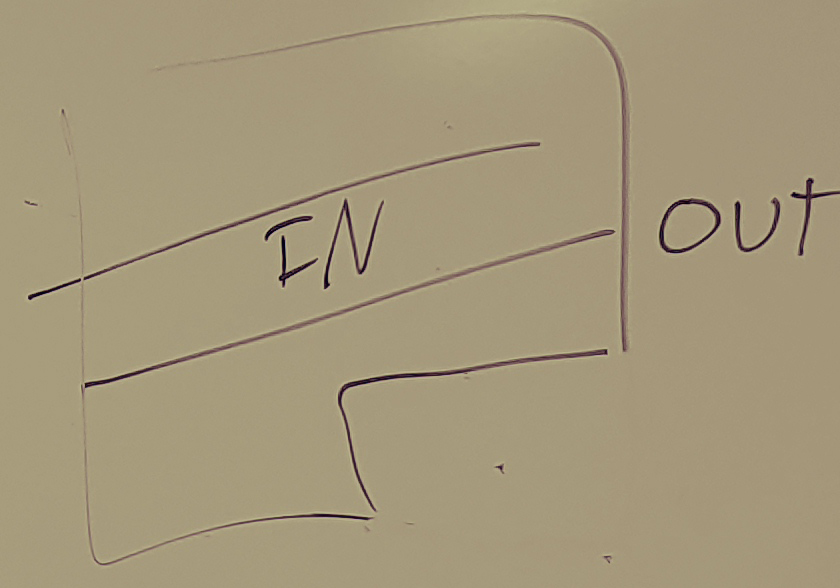 IN
OUT